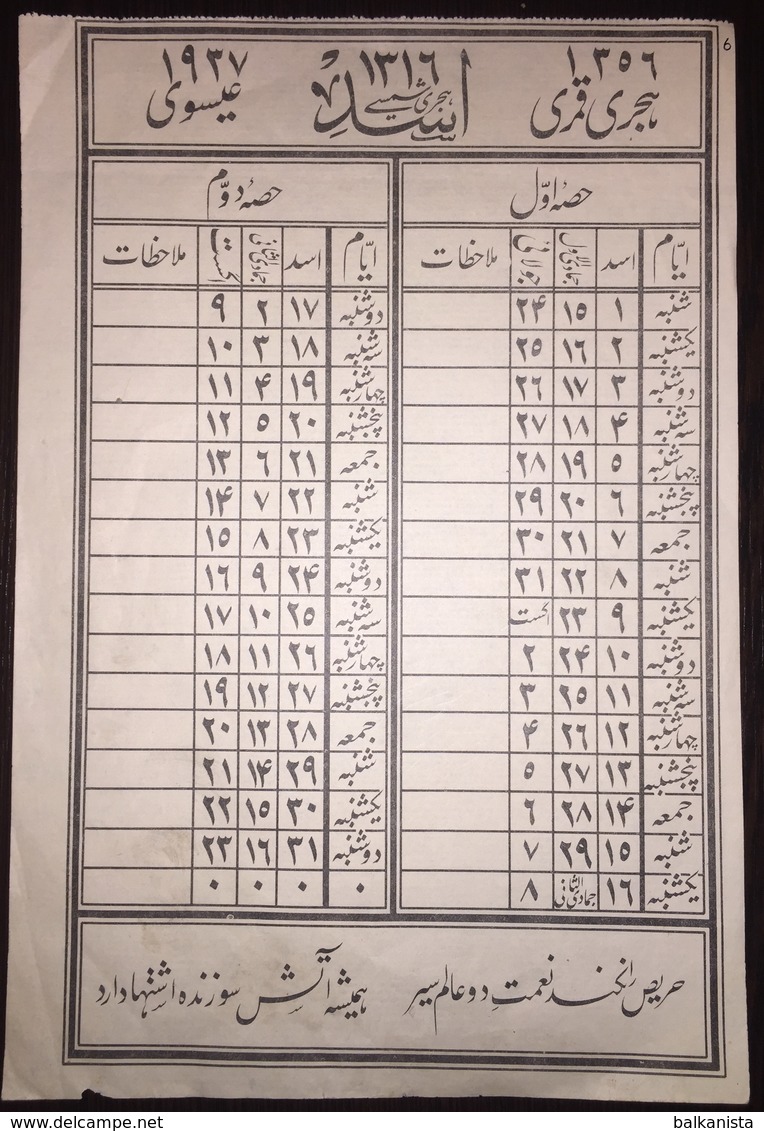 6
۱۳۵۶ ۱۳۱۶ ۱۹۳۷
هجری قمری اسد هجری شمسی عیسوی
حصهٔ اوّل
ایّام اسد جمادی الاول جولائی ملاحظات
شنبه ۱ ۱۵ ۲۴
یکشنبه ۲ ۱۶ ۲۵
دوشنبه ۳ ۱۷ ۲۶
سه شنبه ۴ ۱۸ ۲۷
چهارشنبه ۵ ۱۹ ۲۸
پنجشنبه ۶ ۲۰ ۲۹
جمعه ۷ ۲۱ ۳۰
شنبه ۸ ۲۲ ۳۱
یکشنبه ۹ ۲۳ اگست
دوشنبه ۱۰ ۲۴ ۲
سه شنبه ۱۱ ۲۵ ۳
چهارشنبه ۱۲ ۲۶ ۴
پنجشنبه ۱۳ ۲۷ ۵
جمعه ۱۴ ۲۸ ۶
شنبه ۱۵ ۲۹ ۷
یکشنبه ۱۶ جمادی الثانی ۸
حصهٔ دوّم
ایّام اسد جمادی الثانی اگست ملاحظات
دوشنبه ۱۷ ۲ ۹
سه شنبه ۱۸ ۳ ۱۰
چهارشنبه ۱۹ ۴ ۱۱
پنجشنبه ۲۰ ۵ ۱۲
جمعه ۲۱ ۶ ۱۳
شنبه ۲۲ ۷ ۱۴
یکشنبه ۲۳ ۸ ۱۵
دوشنبه ۲۴ ۹ ۱۶
سه شنبه ۲۵ ۱۰ ۱۷
چهارشنبه ۲۶ ۱۱ ۱۸
پنجشنبه ۲۷ ۱۲ ۱۹
جمعه ۲۸ ۱۳ ۲۰
شنبه ۲۹ ۱۴ ۲۱
یکشنبه ۳۰ ۱۵ ۲۲
دوشنبه ۳۱ ۱۶ ۲۳
۰ ۰ ۰ ۰
حریص را نکند نعمت دو عالم سیر همیشه آتش سوزنده اشتها دارد
balkanista